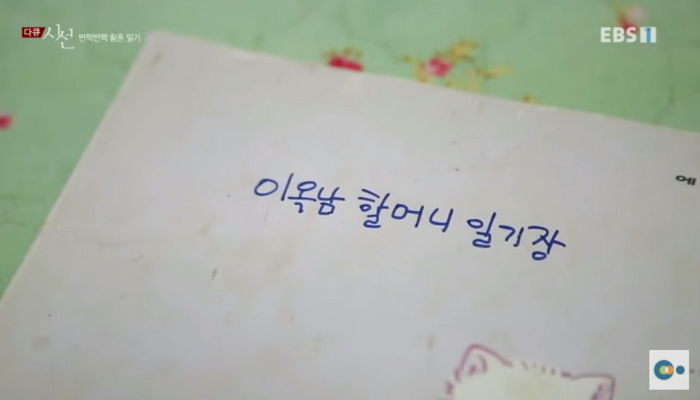 다큐 시선 반짝반짝 황혼 일기
EBS1
에
이옥남 할머니 일기장